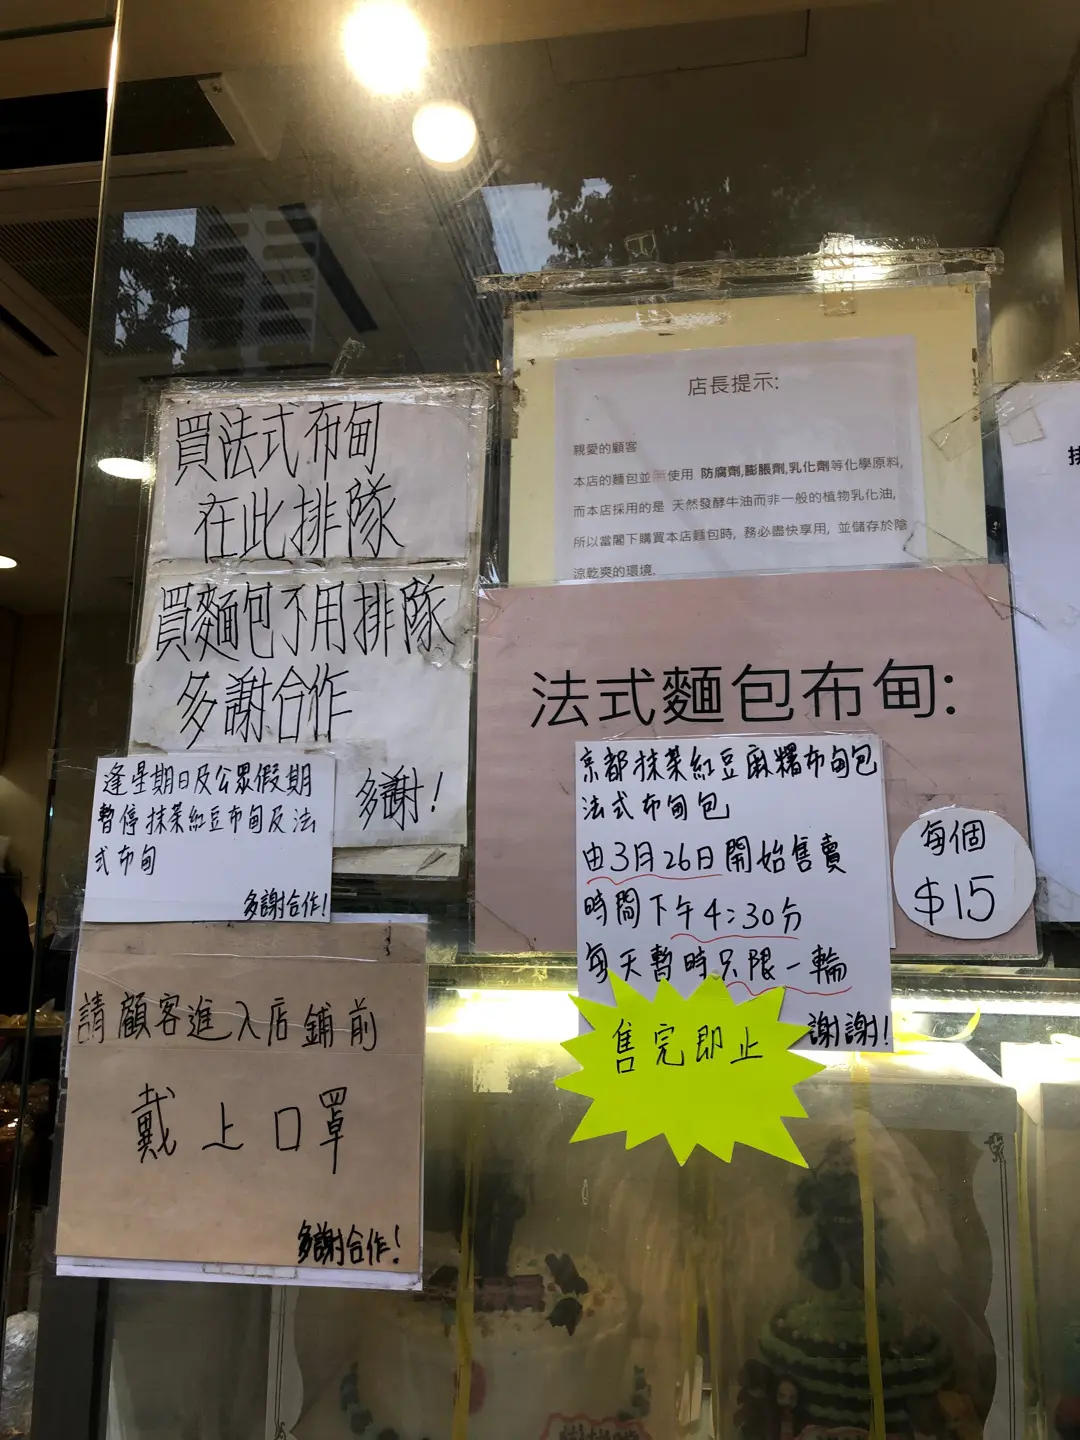 買法式布甸
在此排隊
買麵包不用排隊
多謝合作
多謝!
逢星期日及公眾假期
暫停抹茶紅豆布甸及法
式布甸
多謝合作!
請顧客進入店鋪前
戴上口罩
多謝合作!
店長提示:
親愛的顧客
本店的麵包並無使用 防腐劑,膨脹劑,乳化劑等化學原料,
而本店採用的是 天然發酵牛油而非一般的植物乳化油,
所以當閣下購買本店麵包時, 務必盡快享用, 並儲存於陰
涼乾爽的環境.
法式麵包布甸:
京都抹茶紅豆麻糬布甸包
法式布甸包
由3月26日開始售賣
時間下午4:30分
每天暫時只限一輪
謝謝!
售完即止
每個
$15
排